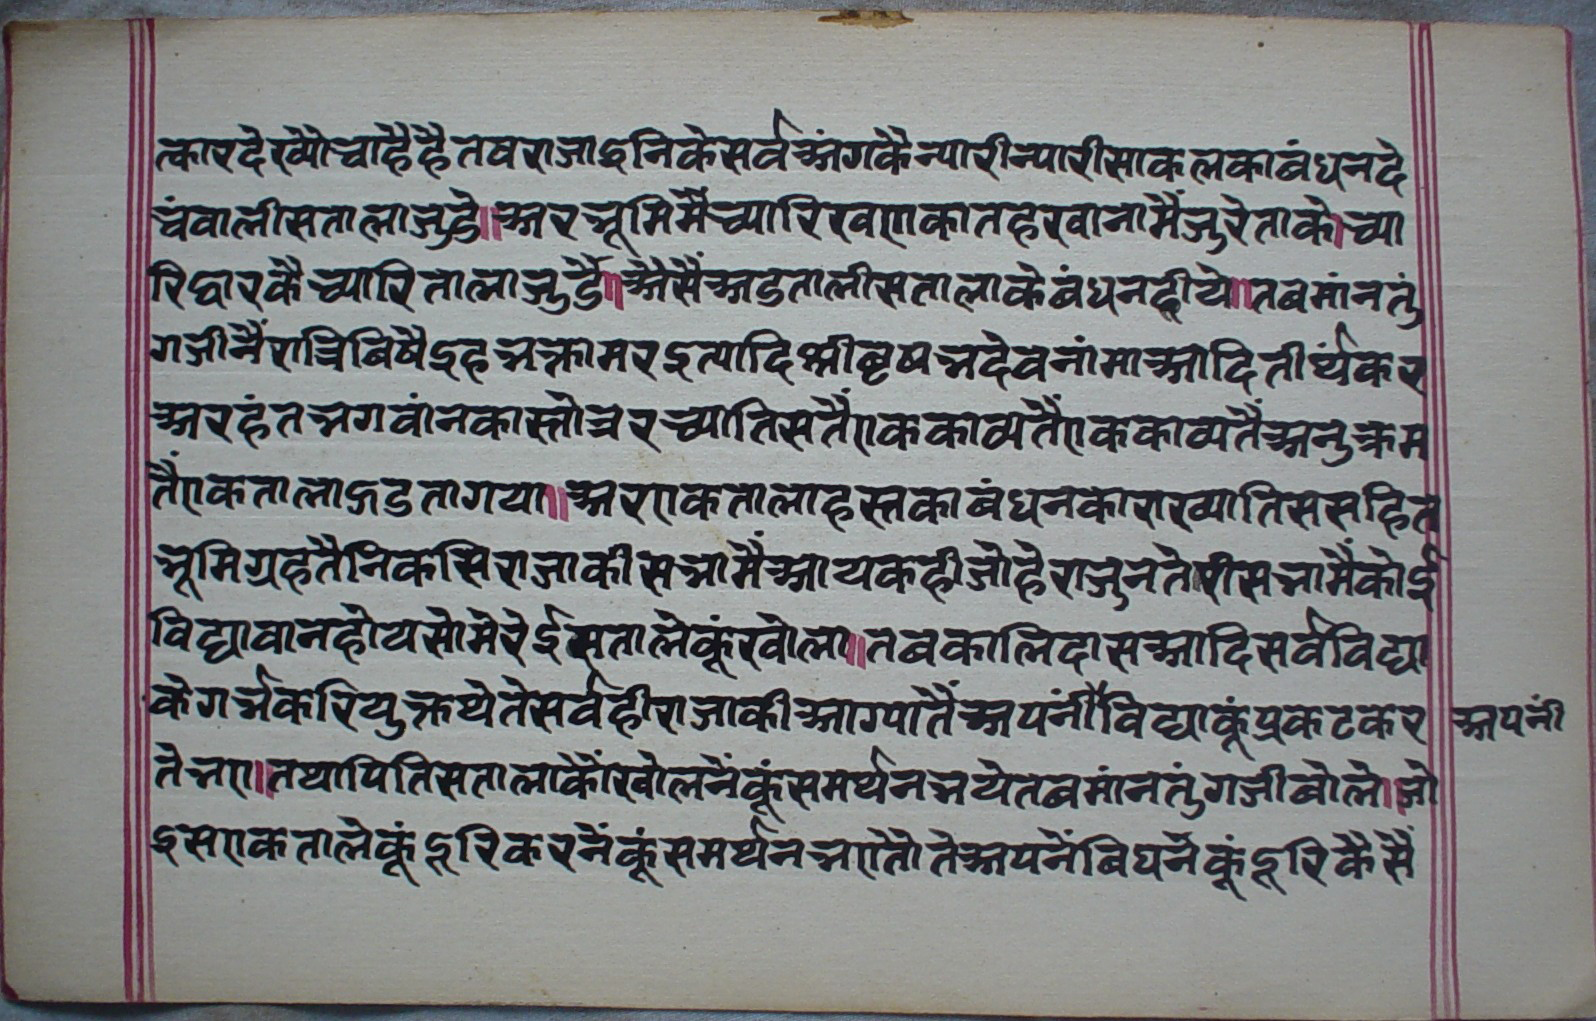 त्कारदेख्यौचाहैहैतबराजाइनिकेसर्वअंगकैन्यारीन्यारीसाकलकाबंधनदे
चंवालीसतालाजुडे॥अरभूमिमैंच्यारिखणकातहखानामैंजुरेताके।च्या
रिद्वारकैच्यारितालाजुडैं॥अैसैंअडतालीसतालाकेबंधनदीये॥तबमांनतुं
गजीनैंरात्रिविषैइहभक्तामरइत्यादिश्रीवृषभदेवनांमाआदितीर्थंकर
अरहंतभगवांनकास्तोत्ररच्यातिसतैंएककाव्यतैंएककाव्यतैंअनुक्रम
तैंएकतालाऊडतागया॥अरएकतालाहस्तकाबंधनकाराख्यातिससहित
भूमिग्रहतैंनिकसिराजाकीसभामैंआयकहीजोहेराजनतेरीसभामैंकोई
विद्यावानहोयसोमेरेईसतालेकूंखोला॥तबकालिदासआदिसर्वविद्या
केगर्भकरियुक्तथेतेसर्वहीराजाकीआग्यातैंअपनींविद्याकूंप्रकटकर अपनीं
तेभए॥तथापितिसतालाकौंखोलनेंकूंसमर्थनभयेतबमांनतुंगजीबोले॥जो
इसएकतालेकूंदूरिकरनेंकूंसमर्थनभएतौतेअपनेंबिघनेंकूंदूरिकैसैं